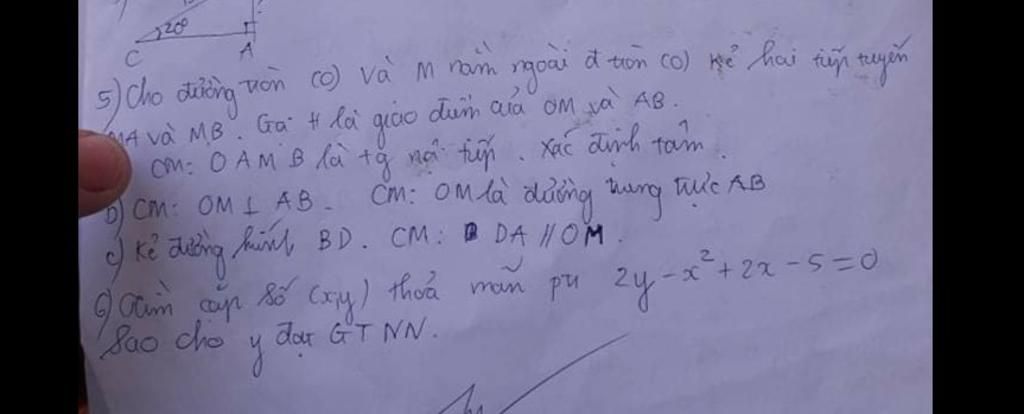 20°
C A
5) Cho đường tròn (O) và M nằm ngoài đ tròn (O) kẻ hai tiếp tuyến
MA và MB. Gọi H là giao điểm của OM và AB.
CM: OAMB là tg nội tiếp. Xác định tâm.
b) CM: OM ⊥ AB. CM: OM là đường trung trực AB
c) Kẻ đường kính BD. CM: DA // OM.
6) Tìm cặp số (x,y) thoả mãn pt 2y - x² + 2x - 5 = 0
Sao cho y đạt GTNN.